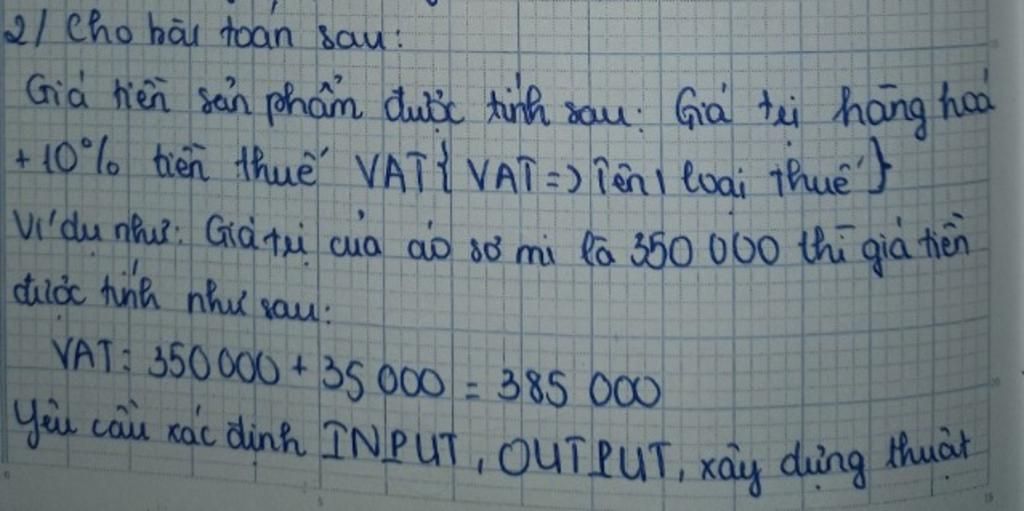 2/ Cho bài toán sau:
Giá tiền sản phẩm được tính sau: Giá trị hàng hoá
+ 10% tiền thuế VAT { VAT => Tên 1 loại thuế }
Ví dụ như: Giá trị của áo sơ mi là 350 000 thì giá tiền
được tính như sau:
VAT: 350 000 + 35 000 = 385 000
Yêu cầu xác định INPUT, OUTPUT, xây dựng thuật